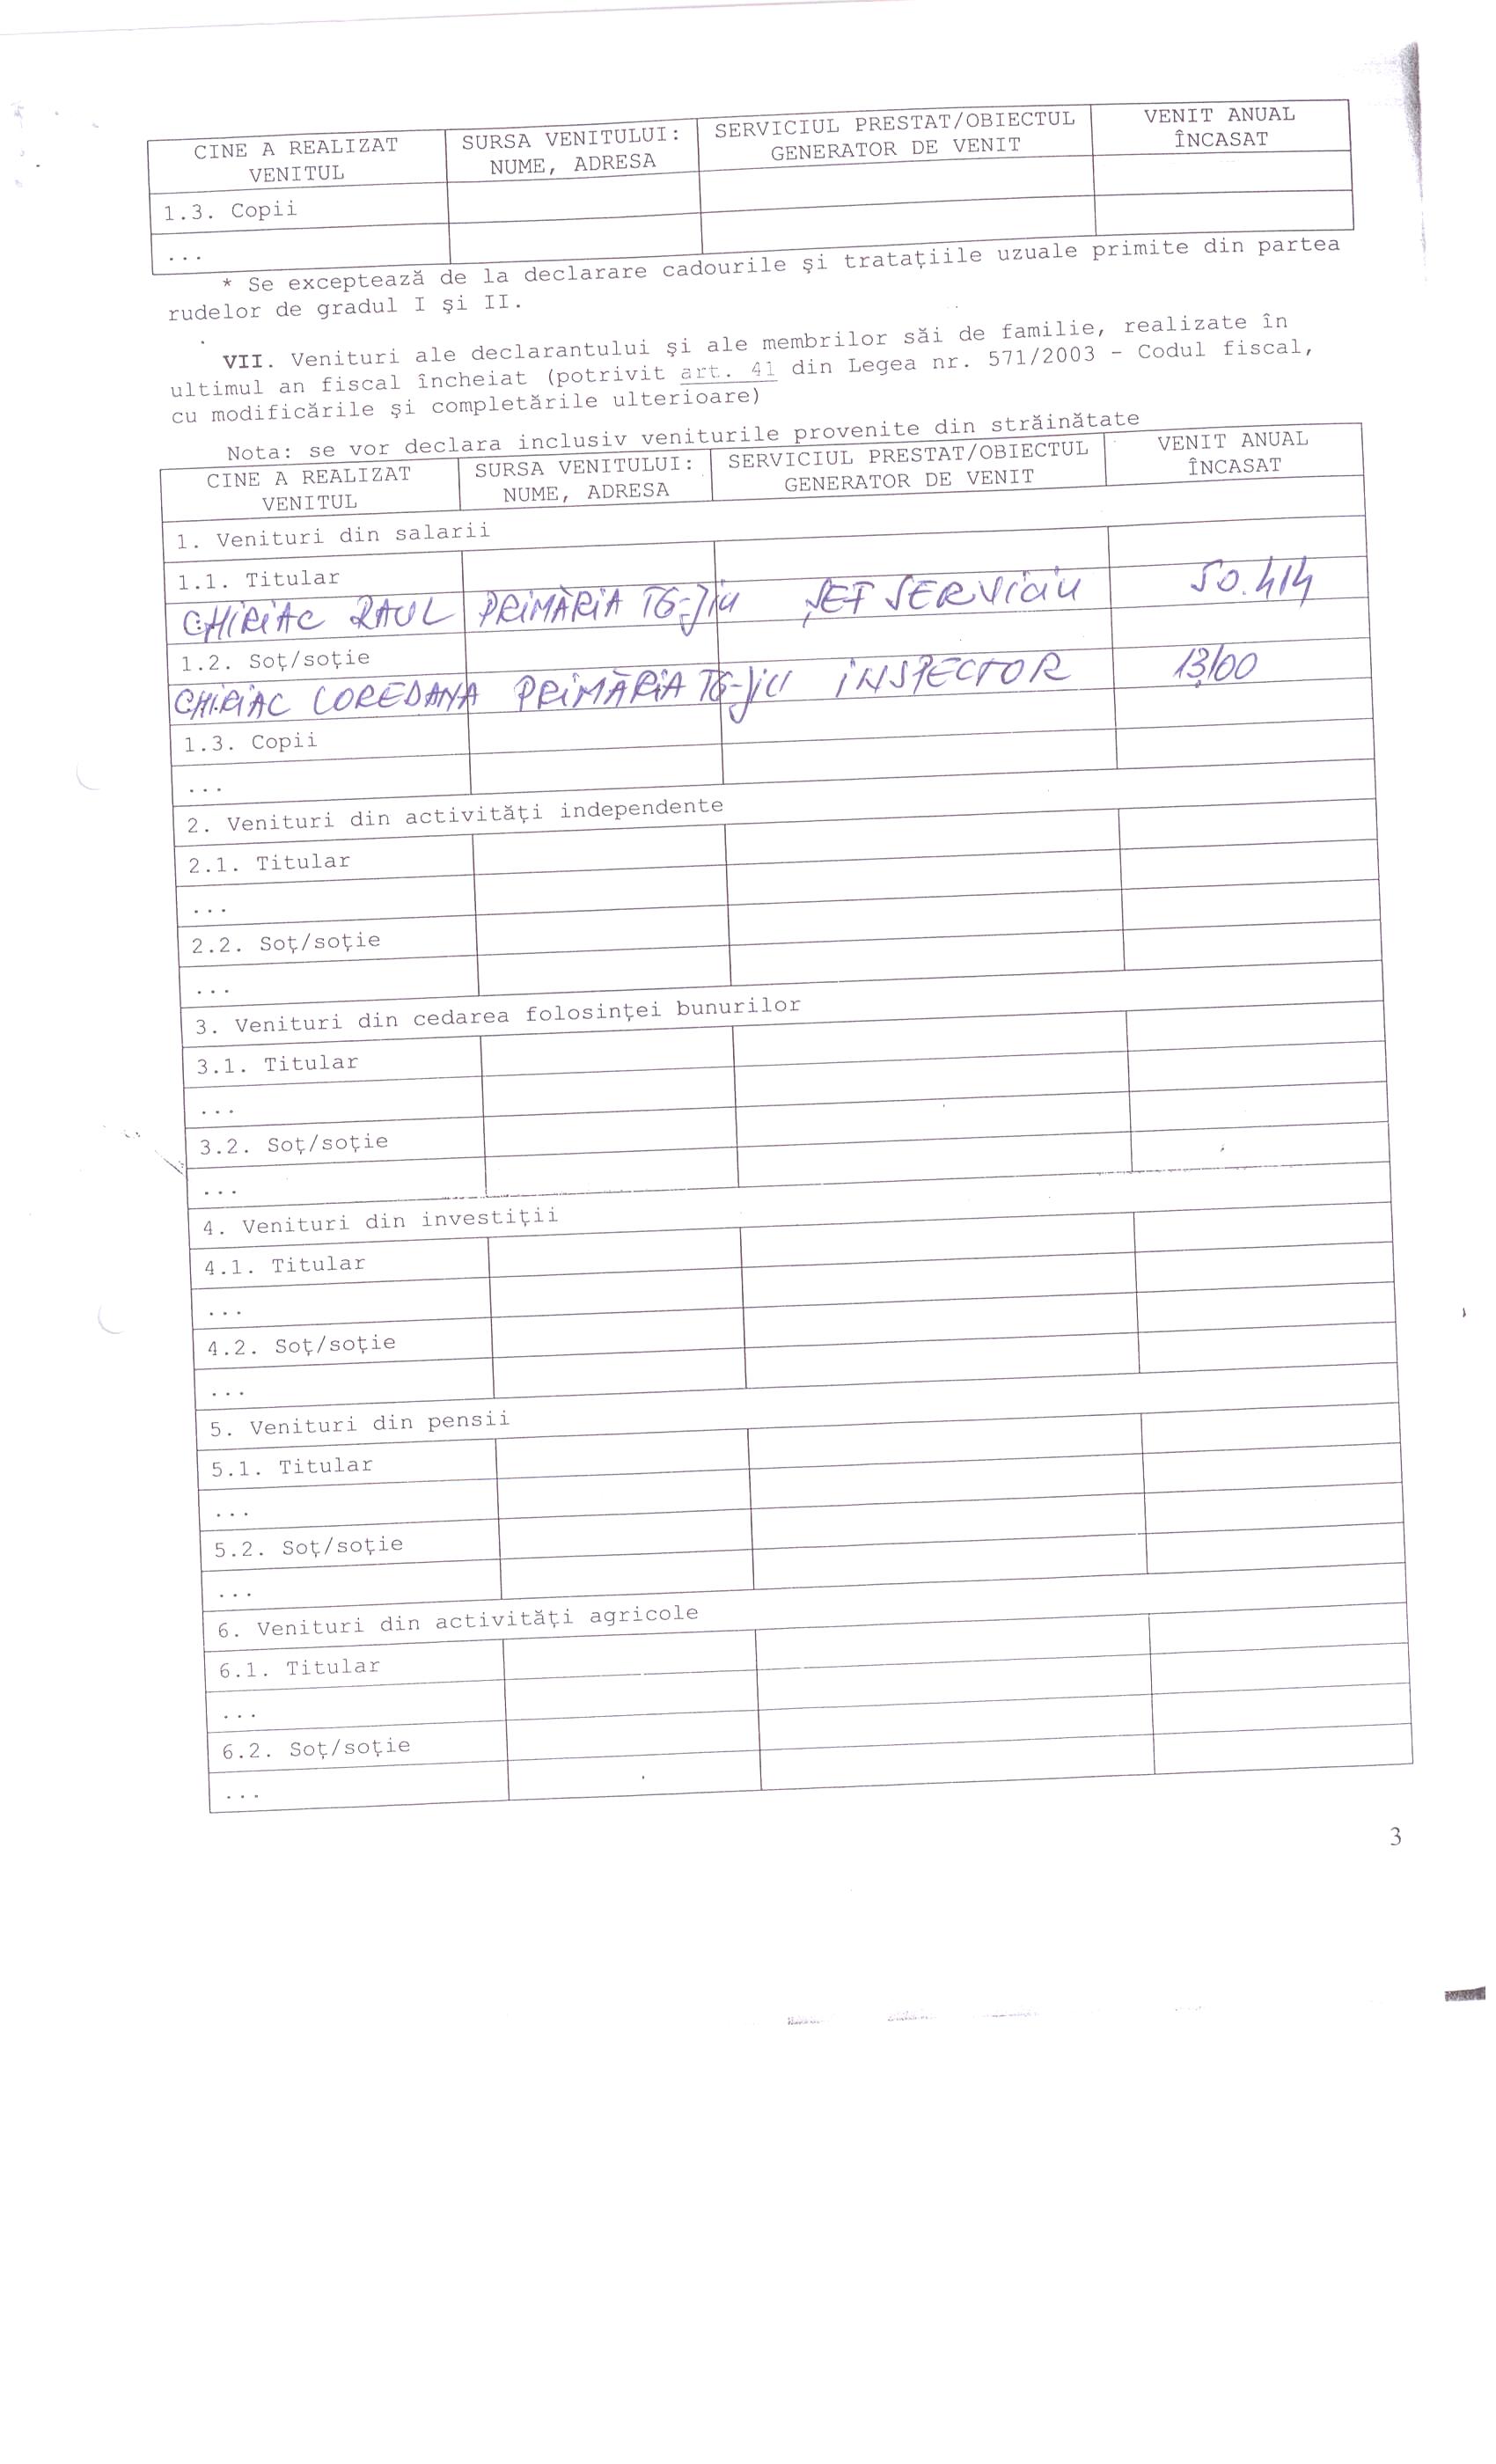 CINE A REALIZAT VENITUL | SURSA VENITULUI: NUME, ADRESA | SERVICIUL PRESTAT/OBIECTUL GENERATOR DE VENIT | VENIT ANUAL ÎNCASAT
1.3. Copii
...
* Se exceptează de la declarare cadourile şi trataţiile uzuale primite din partea
rudelor de gradul I şi II.
VII. Venituri ale declarantului şi ale membrilor săi de familie, realizate în
ultimul an fiscal încheiat (potrivit art. 41 din Legea nr. 571/2003 - Codul fiscal,
cu modificările şi completările ulterioare)
Nota: se vor declara inclusiv veniturile provenite din străinătate
CINE A REALIZAT VENITUL | SURSA VENITULUI: NUME, ADRESA | SERVICIUL PRESTAT/OBIECTUL GENERATOR DE VENIT | VENIT ANUAL ÎNCASAT
1. Venituri din salarii
1.1. Titular
CHIRIAC RAUL PRIMĂRIA TG-JIU ȘEF SERVICIU 50.414
1.2. Soţ/soţie
CHIRIAC LOREDANA PRIMĂRIA TG-JIU INSPECTOR
1.3. Copii
...
2. Venituri din activităţi independente
2.1. Titular
...
2.2. Soţ/soţie
...
3. Venituri din cedarea folosinţei bunurilor
3.1. Titular
...
3.2. Soţ/soţie
...
4. Venituri din investiţii
4.1. Titular
...
4.2. Soţ/soţie
...
5. Venituri din pensii
5.1. Titular
...
5.2. Soţ/soţie
...
6. Venituri din activităţi agricole
6.1. Titular
...
6.2. Soţ/soţie
...
3